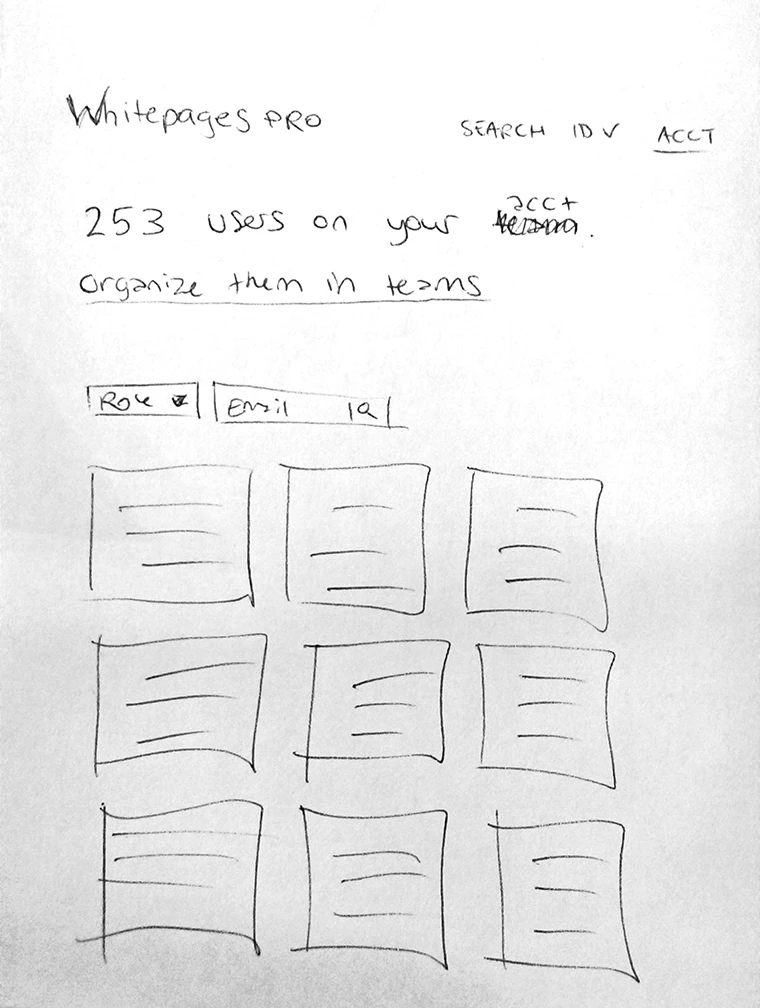 Whitepages PRO
SEARCH ID V ACCT
253 users on your acct.
organize them in teams
Role
Email